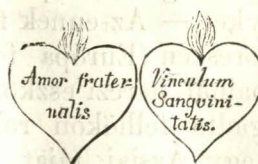 Amor frater-
nalis
Vinculum
Sanguini-
tatis.